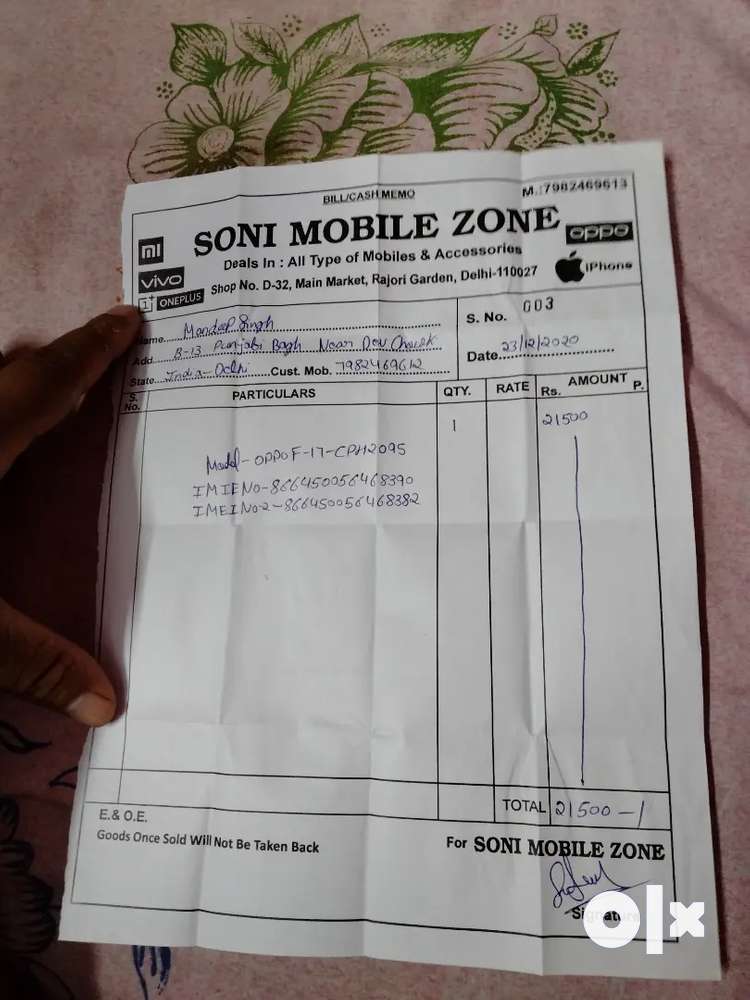 BILL/CASH MEMO
M.:7982469613
SONI MOBILE ZONE
mi
vivo
1+ ONEPLUS
oppo
iPhone
Deals In : All Type of Mobiles & Accessories
Shop No. D-32, Main Market, Rajori Garden, Delhi-110027
Name Mandeep Singh
S. No. 003
Add. B-13 Punjabi Bagh Near Dev Chowk
Date 23/12/2020
State India-Delhi Cust. Mob. 7982469612
S. No. PARTICULARS QTY. RATE AMOUNT Rs. P.
1 21500
Model-OPPO F-17-CPH2095
IMIE No-866450056468390
IMEI No-2-866450056468382
TOTAL 21500-/
E.& O.E.
Goods Once Sold Will Not Be Taken Back
For SONI MOBILE ZONE
Signature
olx